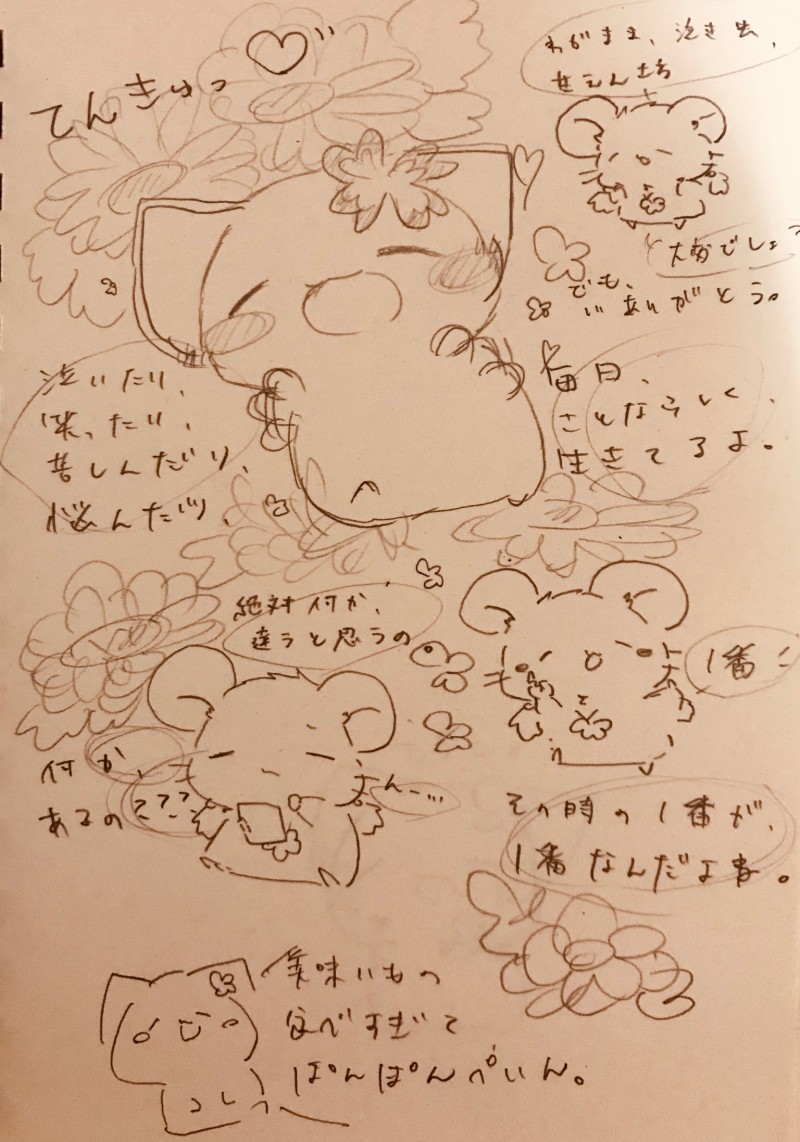 てんきゅっ
わがまま、泣き虫、
甘えん坊
大好でしょ?
でも、
ありがとう。
泣いたり、
笑ったり、
苦しんだり、
悩んだり、
毎日、
ことならしく、
生きてるよ。
絶対何か、
違うと思うの
1番!
何か、
あるの???
んー…
その時の1番が、
1番なんだよ
美味いもの
食べすぎて
ぽんぽんぺいん。